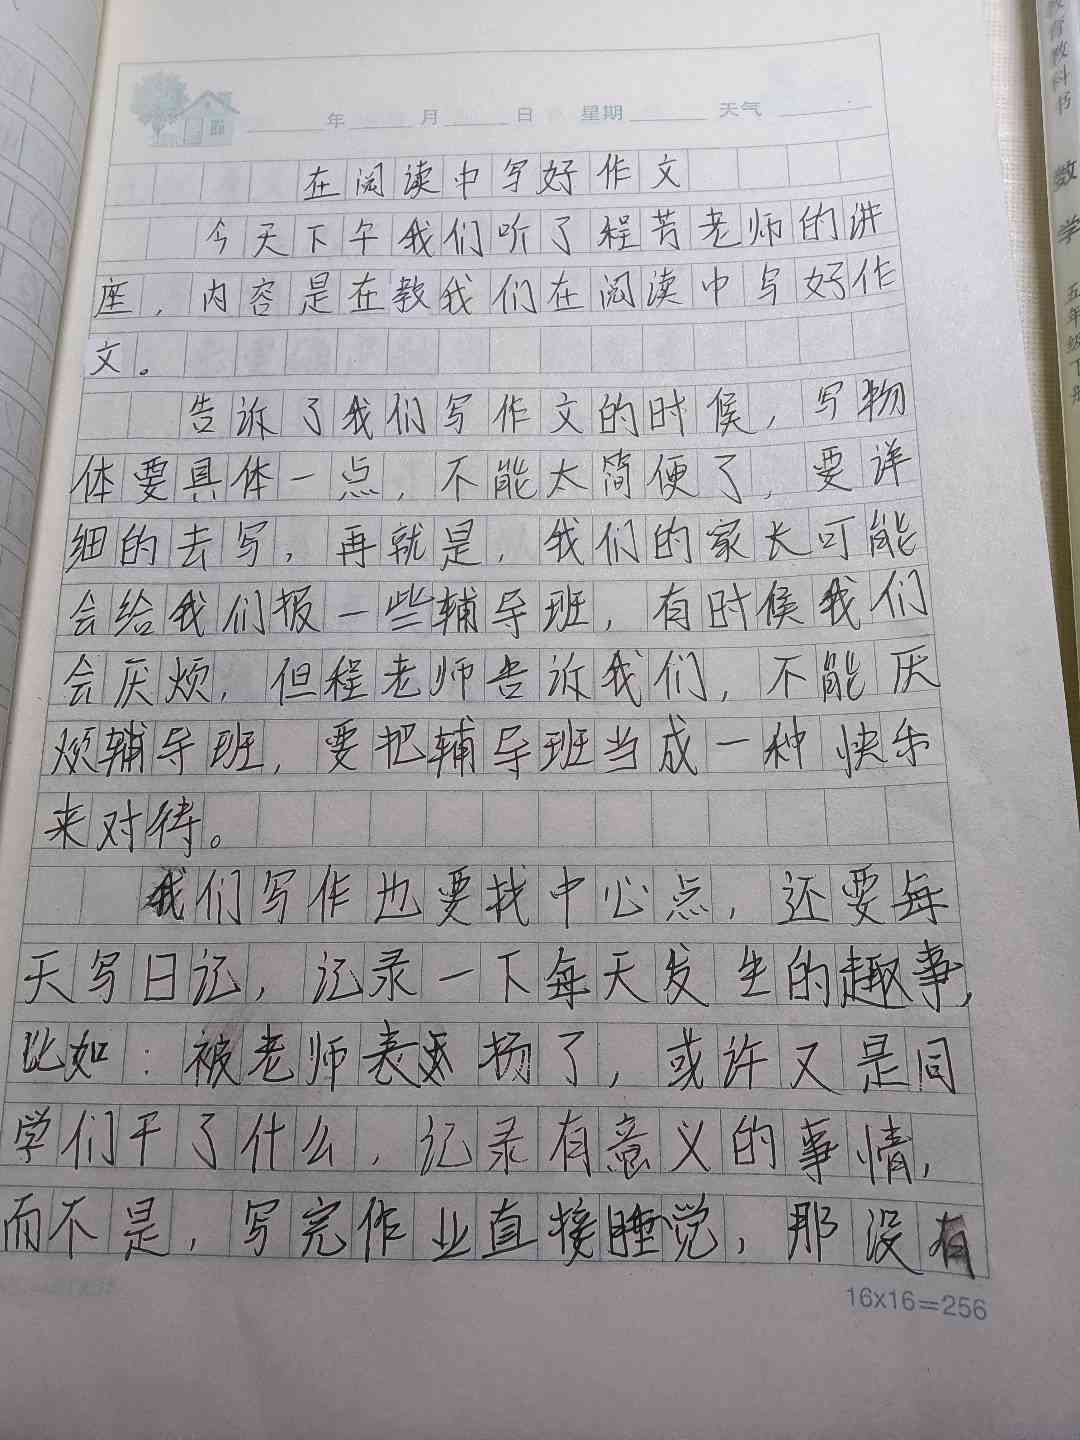 年 月 日 星期 天气
在阅读中写好作文
今天下午我们听了程芳老师的讲
座，内容是在教我们在阅读中写好作
文。
告诉了我们写作文的时候，写物
体要具体一点，不能太简便了，要详
细的去写，再就是，我们的家长可能
会给我们报一些辅导班，有时候我们
会厌烦，但程老师告诉我们，不能厌
烦辅导班，要把辅导班当成一种快乐
来对待。
我们写作也要找中心点，还要每
天写日记，记录一下每天发生的趣事，
比如：被老师表扬了，或许又是同
学们干了什么，记录有意义的事情，
而不是，写完作业直接睡觉，那没有
16x16=256
教育教科书
数学
五年级下册